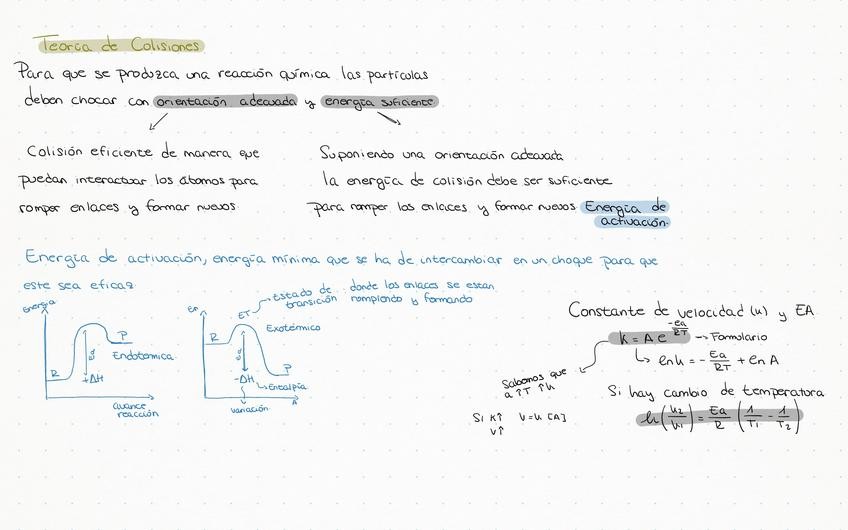 Teoría de Colisiones
Para que se produzca una reacción química las partículas
deben chocar con orientación adecuada y energía suficiente
Colisión eficiente de manera que
puedan interactuar los átomos para
romper enlaces y formar nuevos
Suponiendo una orientación adecuada
la energía de colisión debe ser suficiente
para romper los enlaces y formar nuevos Energía de
activación.
Energía de activación, energía mínima que se ha de intercambiar en un choque para que
este sea eficaz
Energía
R
P
Ea
+ΔH
Endotérmica
avance
reacción
En
R
ET
Estado de
transición
donde los enlaces se estan
rompiendo y formando
Exotérmico
P
-ΔH
Entalpía
variación
Constante de velocidad (k) y EA
k = A e^(-Ea/RT) → Formulario
ln k = - Ea/RT + ln A
Sabemos que
a ↑T ↑k
Si k↑ v=k [A]
v↑
Si hay cambio de temperatura
ln (k2/k1) = Ea/R (1/T1 - 1/T2)